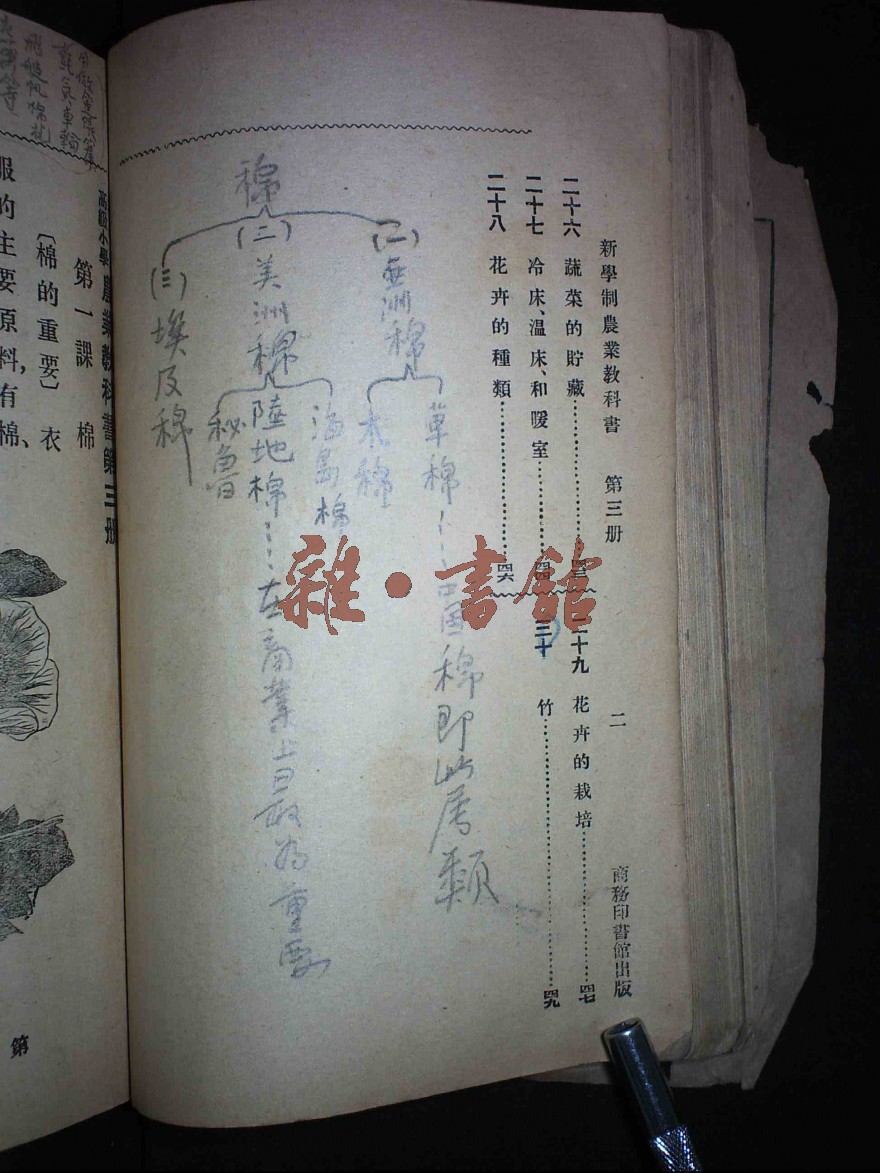 新學制農業教科書　第三册　二　商務印書館出版
二十六　蔬菜的貯藏……四三
二十七　冷床、溫床、和暖室……四四
二十八　花卉的種類……四六
二十九　花卉的栽培……四七
三十　竹……四九
棉
(一)亞洲棉
草棉……中國棉即此屬類
木棉
(二)美洲棉
海島棉
陸地棉……在商業上最為重要
秘魯
(三)埃及棉
雜·書館
高級小學農業教科書第三册
第一課　棉
〔棉的重要〕衣
服的主要原料，有棉、
第